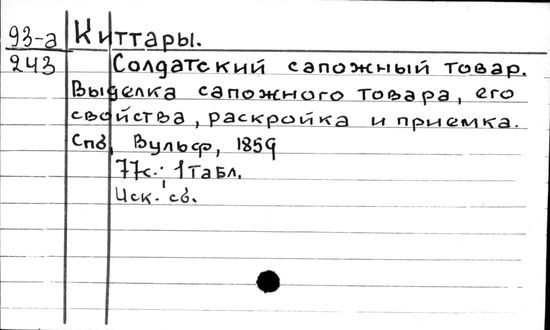 93-а Киттары.
243 Солдатский сапожный товар.
Выделка сапожного товара, его
свойства, раскройка и приемка.
Спб, Вульф, 1859
77с.; 1 табл.
Иск. сб.